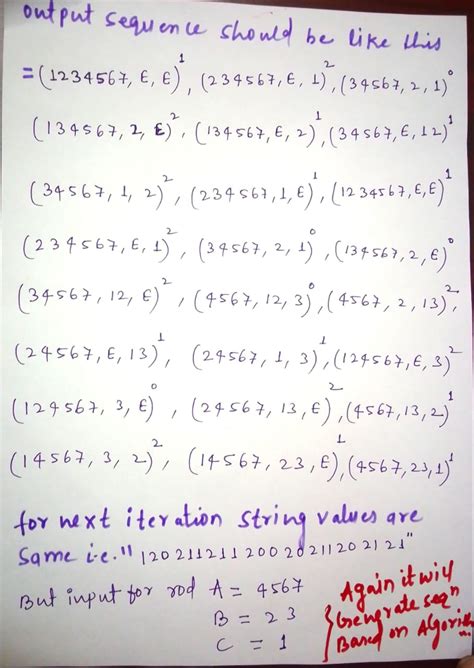 output sequence should be like this
= (1234567, ε, ε)¹, (234567, ε, 1)², (34567, 2, 1)⁰
(134567, 2, ε)², (134567, ε, 2)¹, (34567, ε, 12)¹
(34567, 1, 2)², (234567, 1, ε)¹, (1234567, ε, ε)¹
(234567, ε, 1)², (34567, 2, 1)⁰, (134567, 2, ε)⁰
(34567, 12, ε)², (4567, 12, 3)⁰, (4567, 2, 13)²,
(24567, ε, 13)¹, (24567, 1, 3)¹, (124567, ε, 3)²
(124567, 3, ε)⁰, (24567, 13, ε)², (4567, 13, 2)¹
(14567, 3, 2)², (14567, 23, ε)¹, (4567, 23, 1)¹
for next iteration string values are
same i.e. "120 211211 200 20 211 20 21 21"
But input for rod A = 4567
B = 23
C = 1
Again it will
Generate seqn
Based on Algorithm